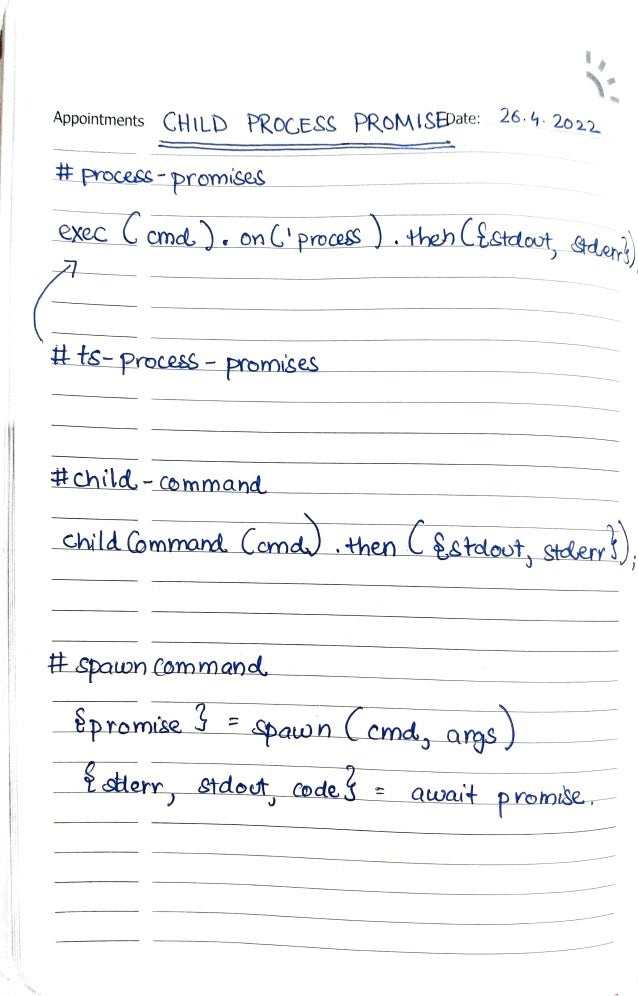 Appointments CHILD PROCESS PROMISE Date: 26.4.2022
# process-promises
exec (cmd). on ('process ). then ({stdout, stderr});
# ts-process-promises
# child-command
child Command (cmd) .then ({stdout, stderr});
# spawn command
{promise } = spawn (cmd, args)
{ stderr, stdout, code} = await promise.